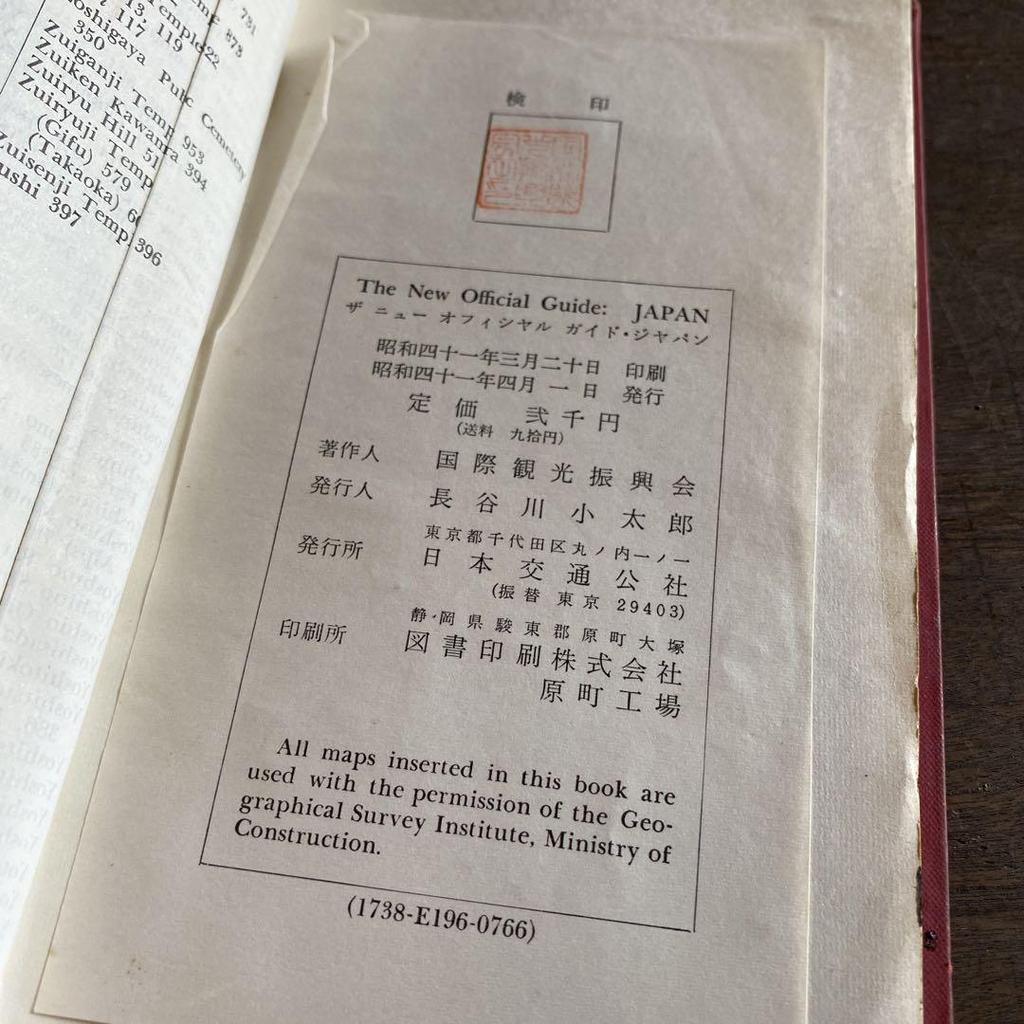 731
873
Temple 22
13, 119
117
oshigaya Pulc Cemetery
350
Zuiganji Temp 953
Zuiken Kawamra 394
Zuiryu Hill 51
Zuiryuji Temp
(Gifu) 579
(Takaoka)
Zuisenji Temp 396
ushi 397
検印
The New Official Guide: JAPAN
ザ ニュー オフィシヤル ガイド・ジヤパン
昭和四十一年三月二十日 印刷
昭和四十一年四月 一 日 発行
定価 弐千円
(送料 九拾円)
著作人 国際観光振興会
発行人 長谷川小太郎
東京都千代田区丸ノ内一ノ一
発行所 日本交通公社
(振替 東京 29403)
静岡県駿東郡原町大塚
印刷所 図書印刷株式会社
原町工場
All maps inserted in this book are
used with the permission of the Geo-
graphical Survey Institute, Ministry of
Construction.
(1738-E196-0766)